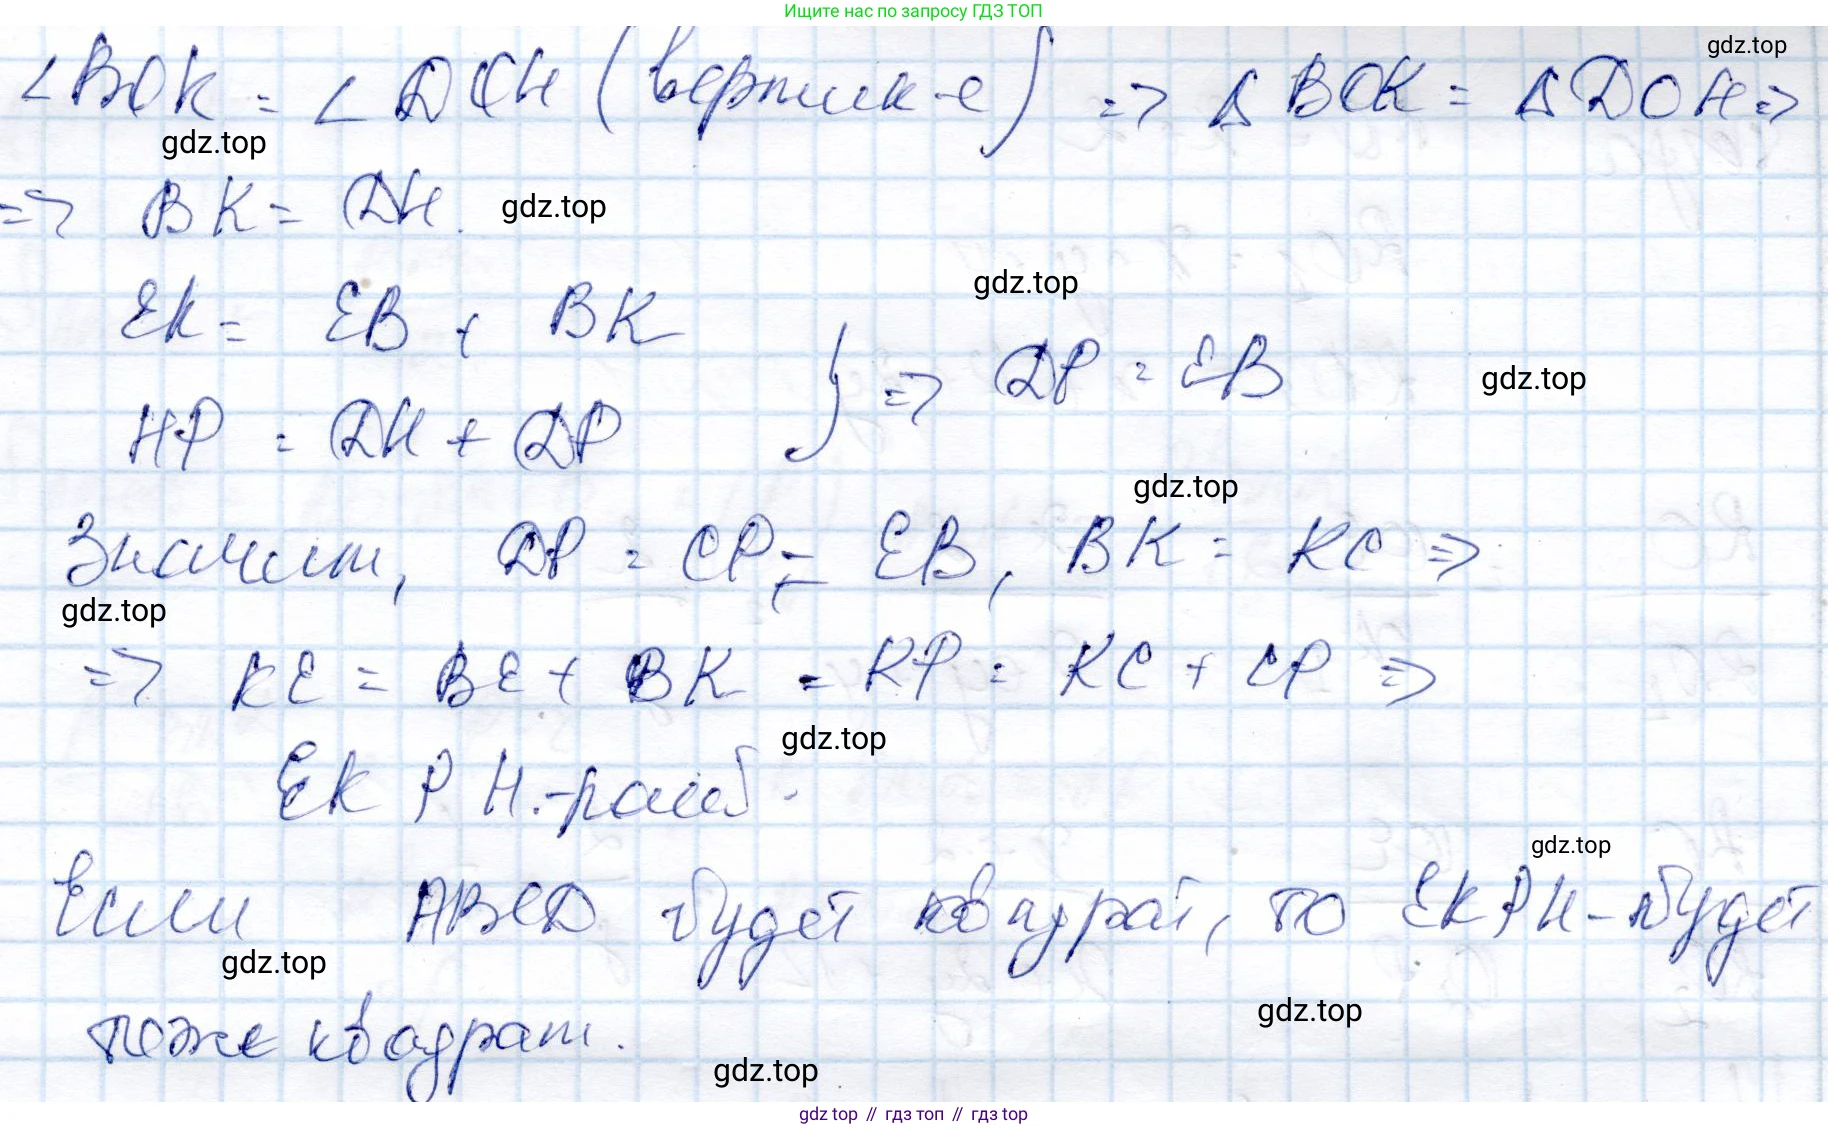 Ищите нас по запросу ГДЗ ТОП
gdz.top
∠BOK = ∠DOH (вертик-е) => Δ BOK = Δ DOH =>
gdz.top
=> BK = DH.
gdz.top
gdz.top
EK = EB + BK
HP = DH + DP } => DP = EB
gdz.top
gdz.top
Значит, DP = CP = EB, BK = KC =>
gdz.top
=> KE = BE + BK = KP = KC + CP =>
gdz.top
EKPH - ромб.
gdz.top
Если ABCD будет квадрат, то EKPH - будет
gdz.top
gdz.top
тоже квадрат.
gdz.top
gdz top // гдз топ // гдз top